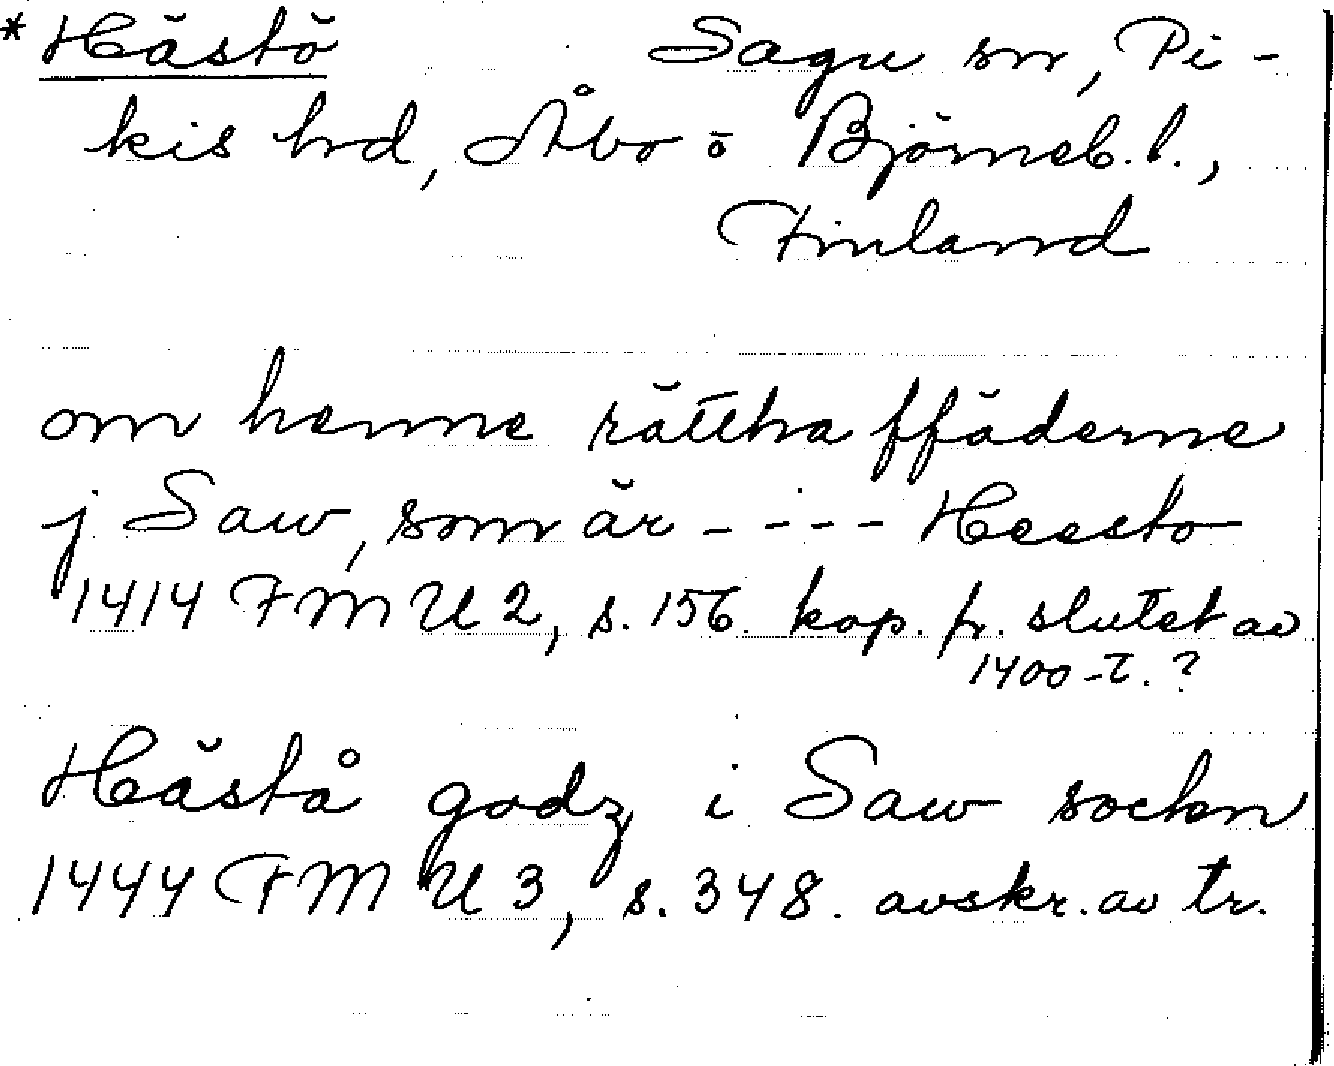 * Hästö Sagu sn, Pi-
kis hd, Åbo o Björneb. l.,
Finland
om henne rättha ffäderne
j Saw, som är - - - - Heesto
1414 FMU 2, s. 156. kop. fr. slutet av
1400-t. ?
Hästå godz i Saw sockn
1444 FMU 3, s. 348. avskr. av tr.